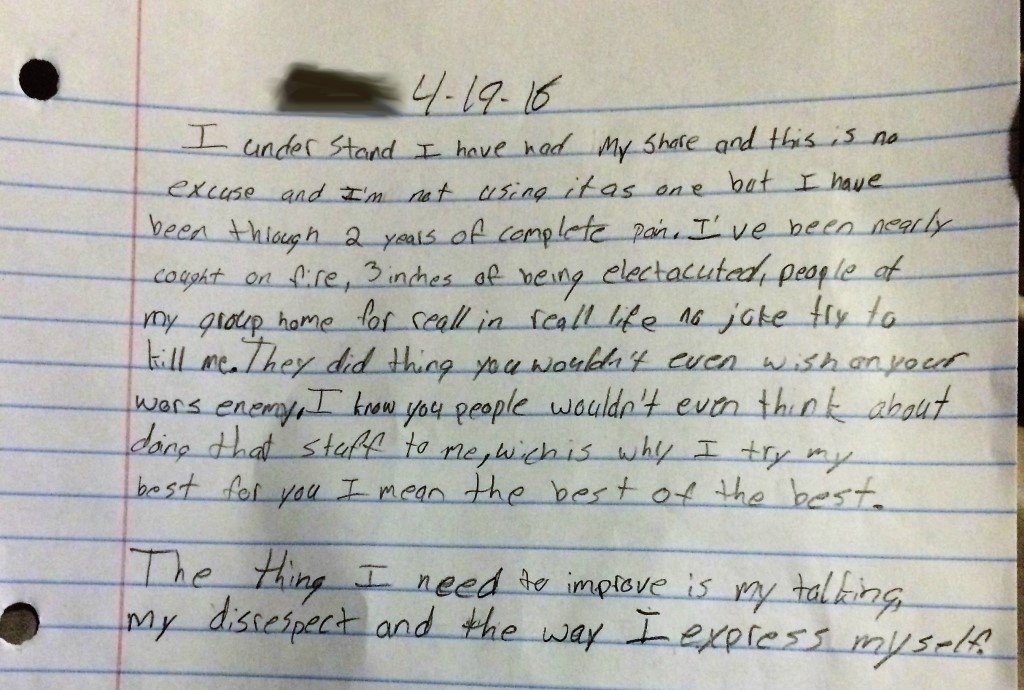 4-19-16
I under stand I have had My share and this is no
excuse and I'm not using it as one but I have
been through 2 years of complete pain. I've been nearly
caught on fire, 3 inches of being electacuted, people at
my group home for reall in reall life no joke try to
kill me. They did thing you wouldn't even wish on your
wors enemy, I know you people wouldn't even think about
doing that stuff to me, wich is why I try my
best for you I mean the best of the best.
The thing I need to improve is my talking,
my disrespect and the way I express myself.